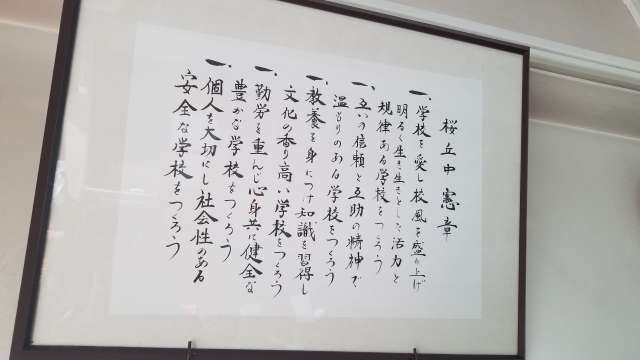 桜丘中 憲章
一、学校を愛し校風を盛り上げ
明るく生き生きとした活力と
規律ある学校をつくろう
一、互いの信頼と互助の精神で
温もりのある学校をつくろう
一、教養を身につけ知識を習得し
文化の香り高い学校をつくろう
一、勤労を重んじ心身共に健全な
豊かな学校をつくろう
一、個人を大切にし社会性のある
安全な学校をつくろう